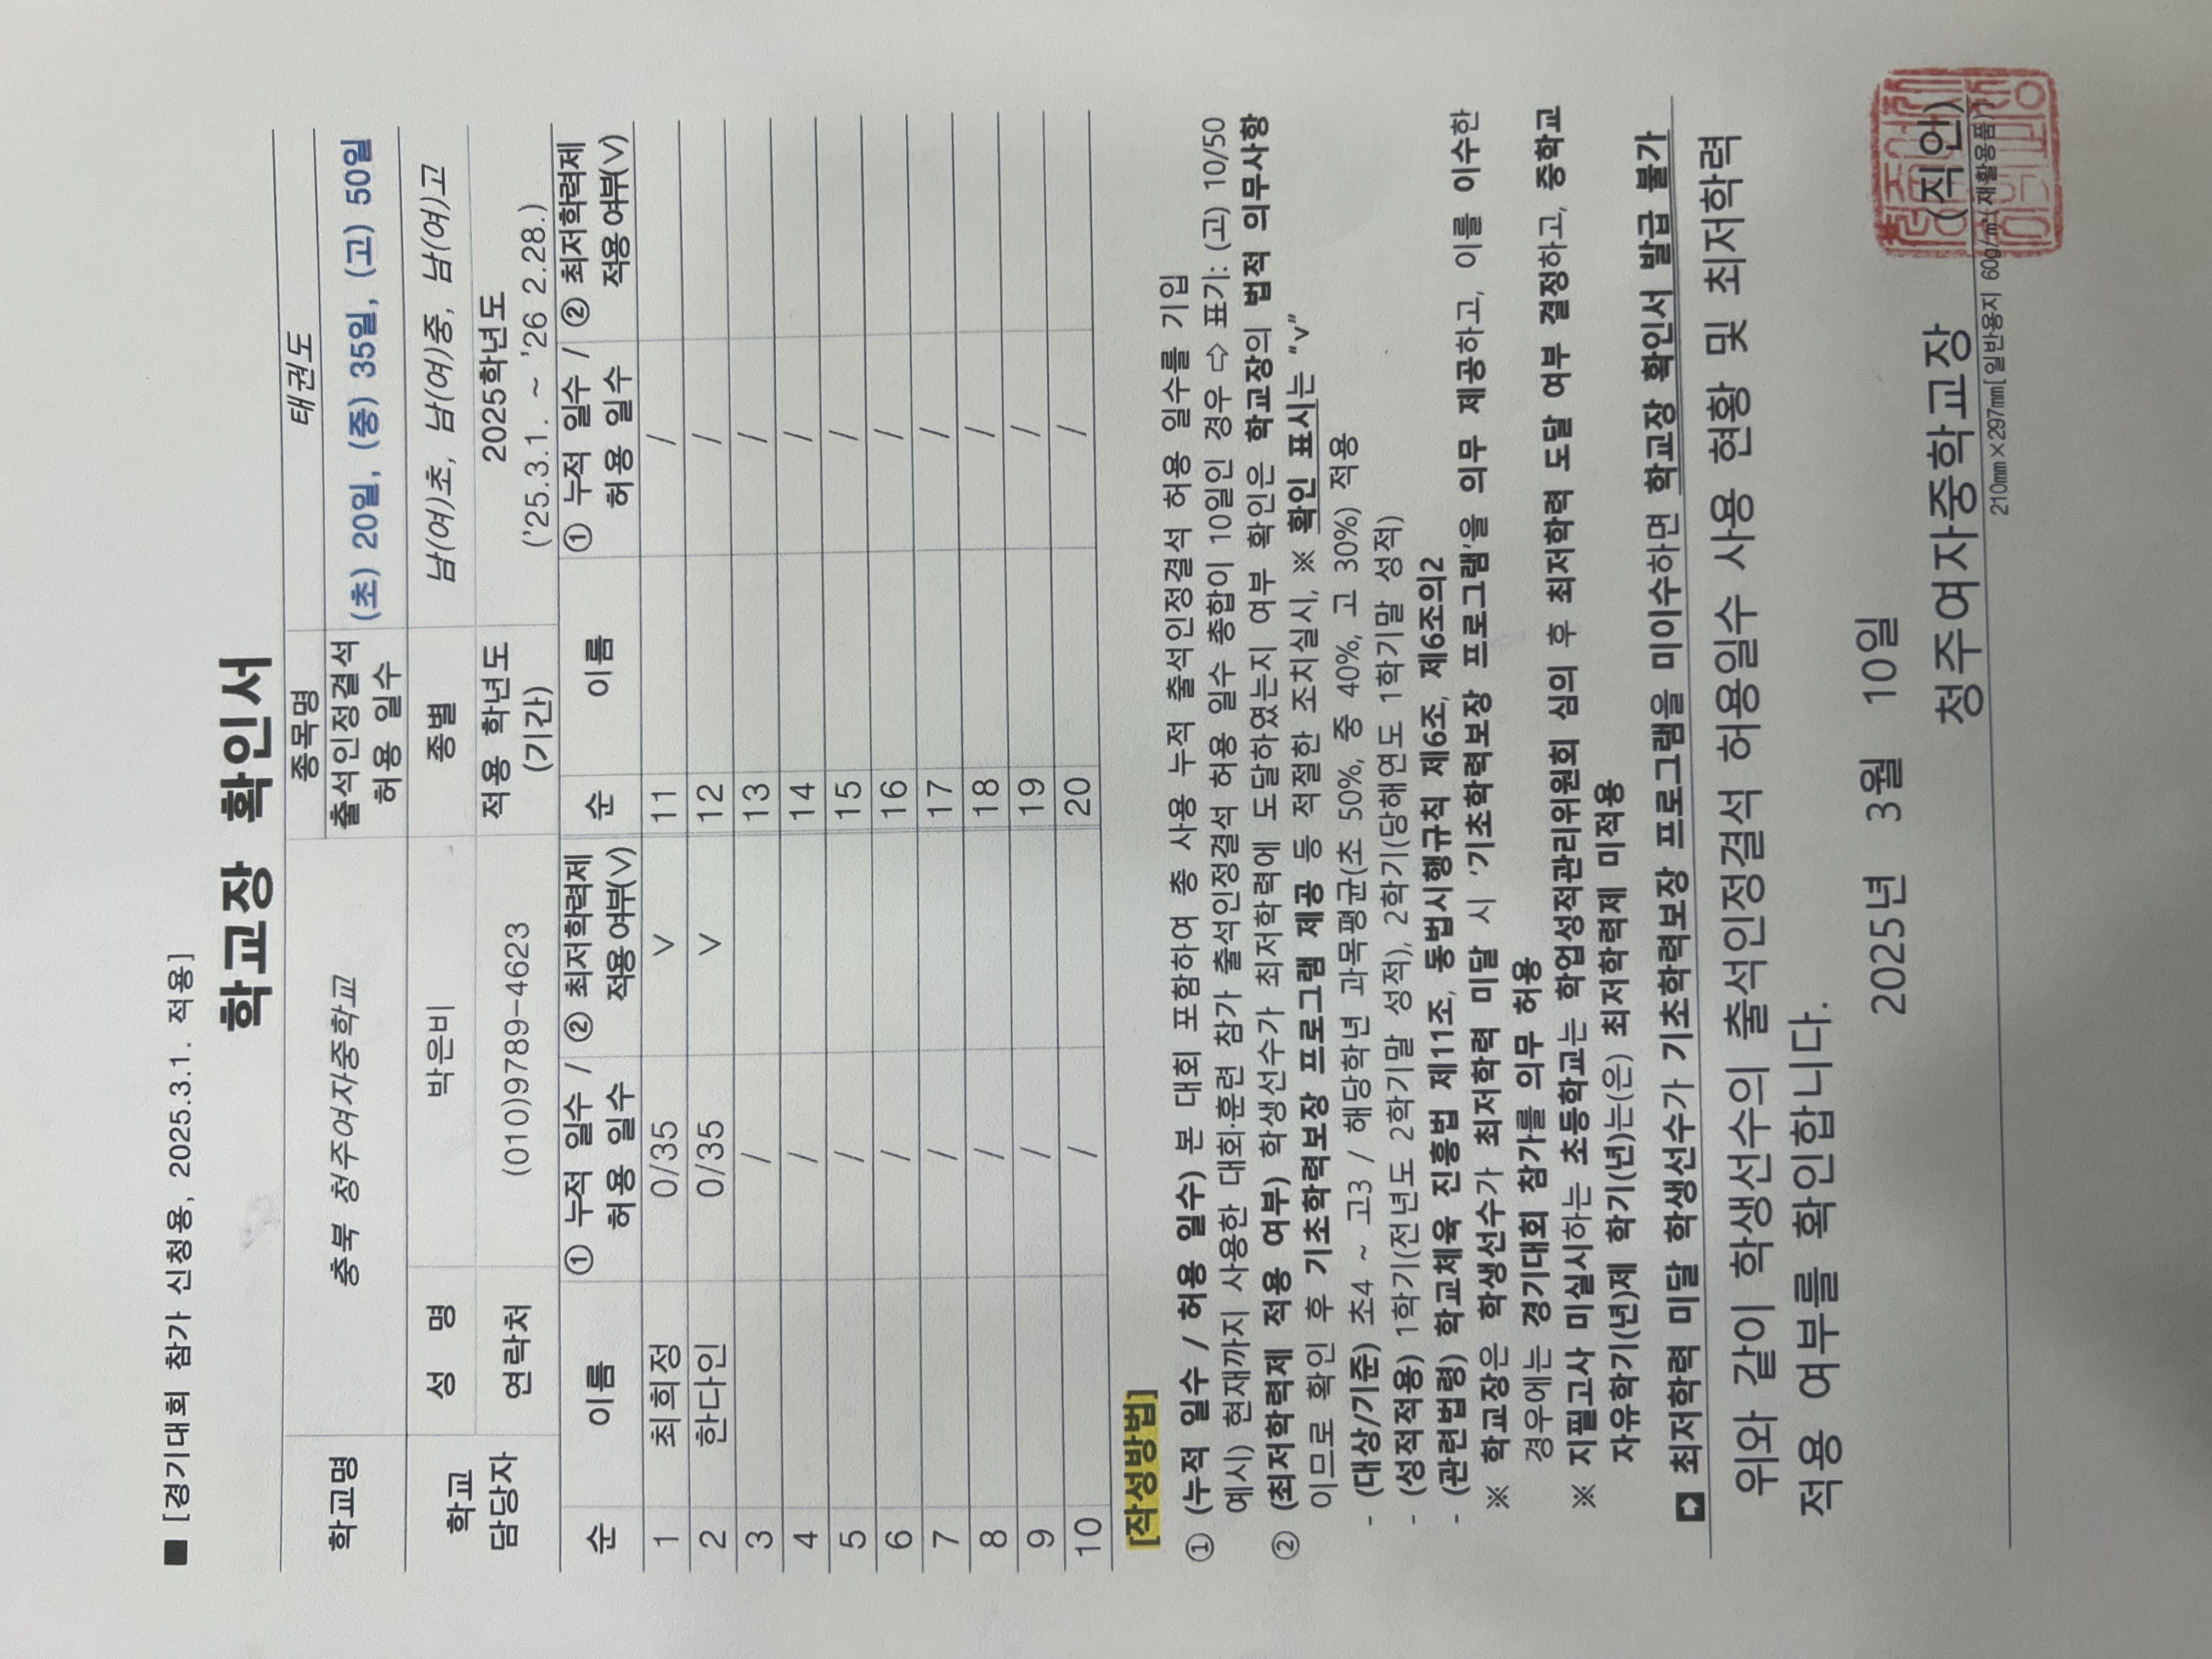 ■ [경기대회 참가 신청용, 2025.3.1. 적용]
학교장 확인서
학교명 충북 청주여자중학교 종목명 태권도
출석인정결석 허용 일수 (초) 20일, (중) 35일, (고) 50일
학교 담당자 성 명 박은비 종별 남(여)초, 남(여)중, 남(여)고
연락처 (010)9789-4623 적용 학년도 (기간) 2025학년도 ('25.3.1. ~ '26 2.28.)
순 이름 ① 누적 일수 / 허용 일수 ② 최저학력제 적용여부(∨) 순 이름 ① 누적 일수 / 허용 일수 ② 최저학력제 적용여부(∨)
1 최희정 0/35 ∨ 11 /
2 한다인 0/35 ∨ 12 /
3 / 13 /
4 / 14 /
5 / 15 /
6 / 16 /
7 / 17 /
8 / 18 /
9 / 19 /
10 / 20 /
[작성방법]
① (누적 일수 / 허용 일수) 본 대회 포함하여 총 사용 누적 출석인정결석 허용 일수를 기입
예시) 현재까지 사용한 대회·훈련 참가 출석인정결석 허용 일수 총합이 10일인 경우 ⇨ 표기: (고) 10/50
② (최저학력제 적용 여부) 학생선수가 최저학력에 도달하였는지 여부 확인은 학교장의 법적 의무사항
이므로 확인 후 기초학력보장 프로그램 제공 등 적절한 조치실시, ※ 확인 표시는 “v”
- (대상/기준) 초4 ~ 고3 / 해당학년 과목평균(초 50%, 중 40%, 고 30%) 적용
- (성적적용) 1학기(전년도 2학기말 성적), 2학기(당해연도 1학기말 성적)
- (관련법령) 학교체육 진흥법 제11조, 동법시행규칙 제6조, 제6조의2
※ 학교장은 학생선수가 최저학력 미달 시 '기초학력보장 프로그램'을 의무 제공하고, 이를 이수한
경우에는 경기대회 참가를 의무 허용
※ 지필고사 미실시하는 초등학교는 학업성적관리위원회 심의 후 최저학력 도달 여부 결정하고, 중학교
자유학기(년)제 학기(년)는(은) 최저학력제 미적용
➡ 최저학력 미달 학생선수가 기초학력보장 프로그램을 미이수하면 학교장 확인서 발급 불가
위와 같이 학생선수의 출석인정결석 허용일수 사용 현황 및 최저학력
적용 여부를 확인합니다.
2025년 3월 10일
청주여자중학교장 (직인)
210㎜×297㎜[일반용지 60g/㎡(재활용품)]